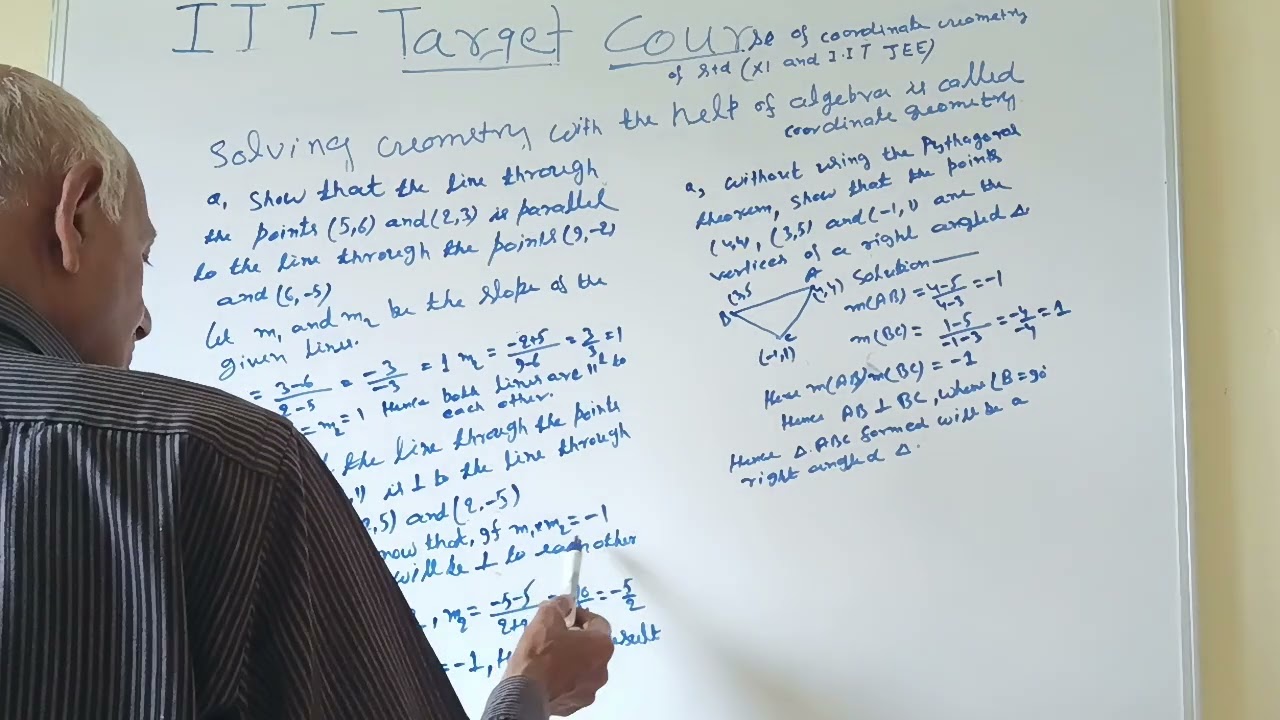 IIT- Target Course of coordinate Geometry
of std (XI and I.IT JEE)
Solving Geometry, with the help of algebra is called
coordinate geometry
Q, Show that the line through
the points (5,6) and (2,3) is parallel
to the line through the points (9,-2)
and (6,-5)
Let m, and m2 be the slope of the
given lines.
= 3-6/2-5 = -3/-3 = 1 m2 = -2+5/9-6 = 3/3 = 1
= m2 = 1 Hence both lines are 11 to
each other.
the line through the points
is ⊥ to the line through
,5) and (2,-5)
now that, If m, m2 = -1
will be ⊥ to each other
, m2 = -5-5/2+ = -5/2
= -1, result
Q, without using the Pythagoras
theorem, show that the points
(4,4), (3,5) and (-1,1) are the
vertices of a right angled Δ
Solution
A
(4,4)
(3,5
B
C
(-1,1)
m(AB) = 4-5/4-3 = -1
m(BC) = 1-5/-1-3 = -4/-4 = 1
Here m(AB) m(BC) = -1
Hence AB ⊥ BC, where ∠B = 90°
Hence Δ ABC formed will be a
right angled Δ.